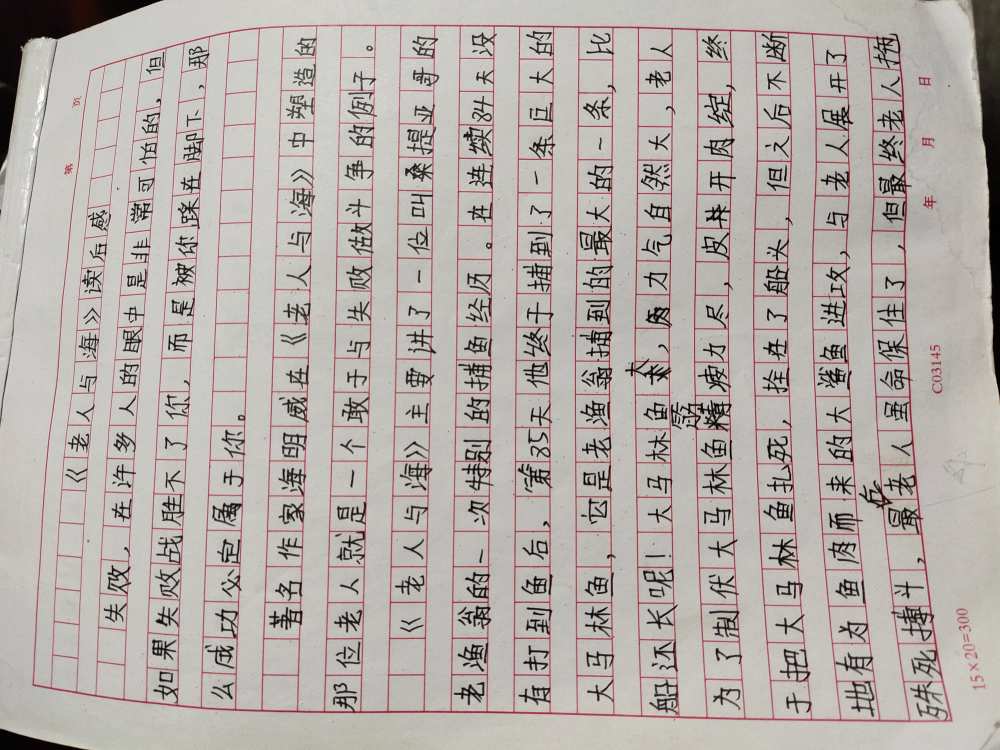 第 页
《老人与海》读后感
失败，在许多人的眼中是非常可怕的，但
如果失败战胜不了你，而是被你踩在脚下，那
么成功必定属于你。
著名作家海明威在《老人与海》中塑造的
那位老人就是一个敢于与失败做斗争的例子。
《老人与海》主要讲了一位叫桑提亚哥的
老渔翁的一次特别的捕鱼经历。在连续84天没
有打到鱼后，第85天他终于捕到了一条巨大的
大马林鱼，它是老渔翁捕到的最大的一条，比
船还长呢！大马林鱼大，力气自然大，老人
为了制伏大马林鱼疲力尽，皮开肉绽，终
于把大马林鱼扎死，拴在了船头，但之后不断
地有为鱼肉而来的大鲨鱼进攻，与老人展开了
殊死搏斗，最后老人虽命保住了，但最终老人拖
15×20=300 C03145 年 月 日